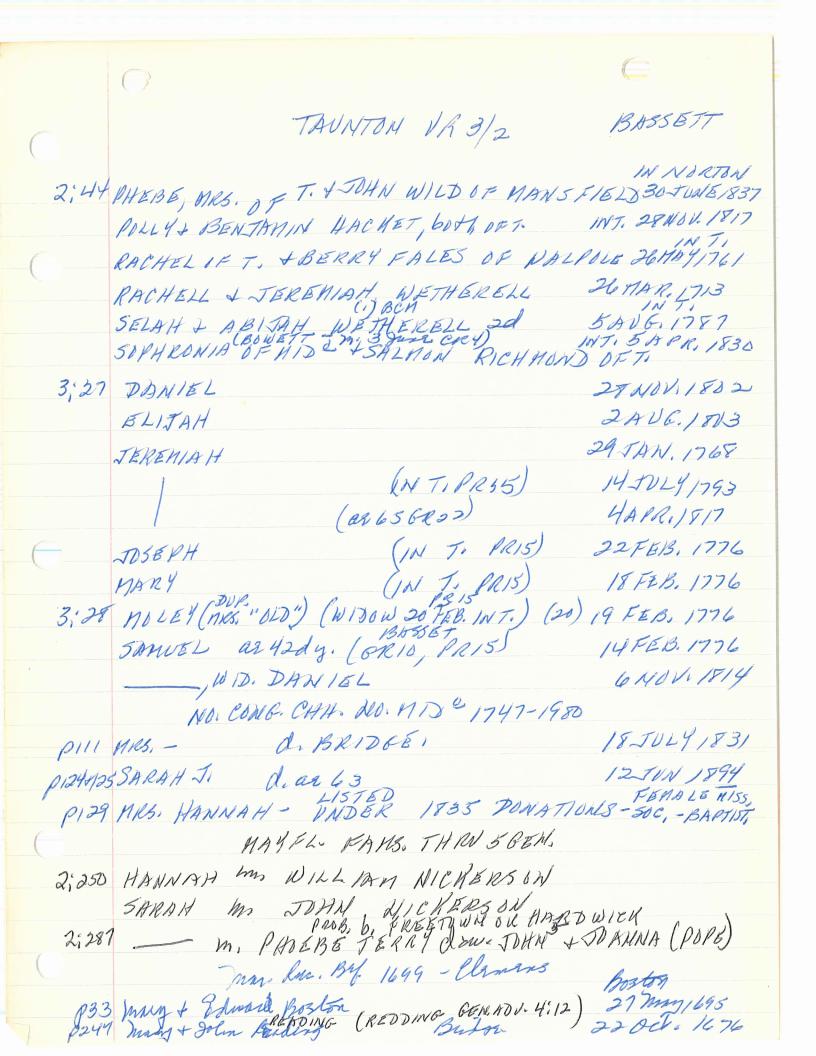 TAUNTON VR 3/2 BASSETT
IN NORTON
2:44 PHEBE, MRS. OF T. & JOHN WILD OF MANSFIELD 30 JUNE 1837
POLLY & BENJAMIN HACKET, both OF T. INT. 28 NOV. 1817
IN T.
RACHEL OF T. & BERRY FALES OF WALPOLE 26 MAY 1761
RACHELL & JEREMIAH WETHERELL 26 MAR. 1713
(1) BCM IN T.
SELAH & ABIJAH WETHERELL 2d 5 AUG. 1787
(BOWETT CR4)
SOPHRONIA OF MID & SALMON RICHMOND OF T. INT. 5 APR. 1830
3:27 DANIEL 28 NOV. 1802
ELIJAH 2 AUG. 1803
JEREMIAH 29 JAN. 1768
(IN T. PR15) 14 JULY 1793
(ae 65 GR22) 4 APR. 1817
JOSEPH (IN T. PR15) 22 FEB. 1776
MARY (IN T. PR15) 18 FEB. 1776
DUP. PR15
3:28 MOLEY (MRS. "OLD") (WIDOW 20 FEB. INT.) (20) 19 FEB. 1776
BASSET
SAMUEL ae 42 dy. (GR10, PR15) 14 FEB. 1776
———, WID. DANIEL 6 NOV. 1814
NO. CONG. CHH. NO. MID 1747-1980
p111 MRS. - d. BRIDGE. 18 JULY 1831
p124/125 SARAH J. d. ae 63 12 JUN 1894
LISTED FEMALE MISS.
p129 MRS. HANNAH - UNDER 1835 DONATIONS - SOC. - BAPTIST.
MAYFL. FAMS. THRU 5 GEN.
2:250 HANNAH m WILLIAM NICKERSON
SARAH m JOHN NICKERSON
PROB. b. FREETOWN OR HARDWICK
2:287 ——— m. PHOEBE TERRY JOHN & JOANNA (POPE)
Mar. Rec. Bef. 1699 - Clemens
Boston
p33 Mary & Edward Boston 27 May 1695
READING (REDDING GEN. ADV. 4:12)
p247 Mary & John Reding Boston 22 Oct. 1676